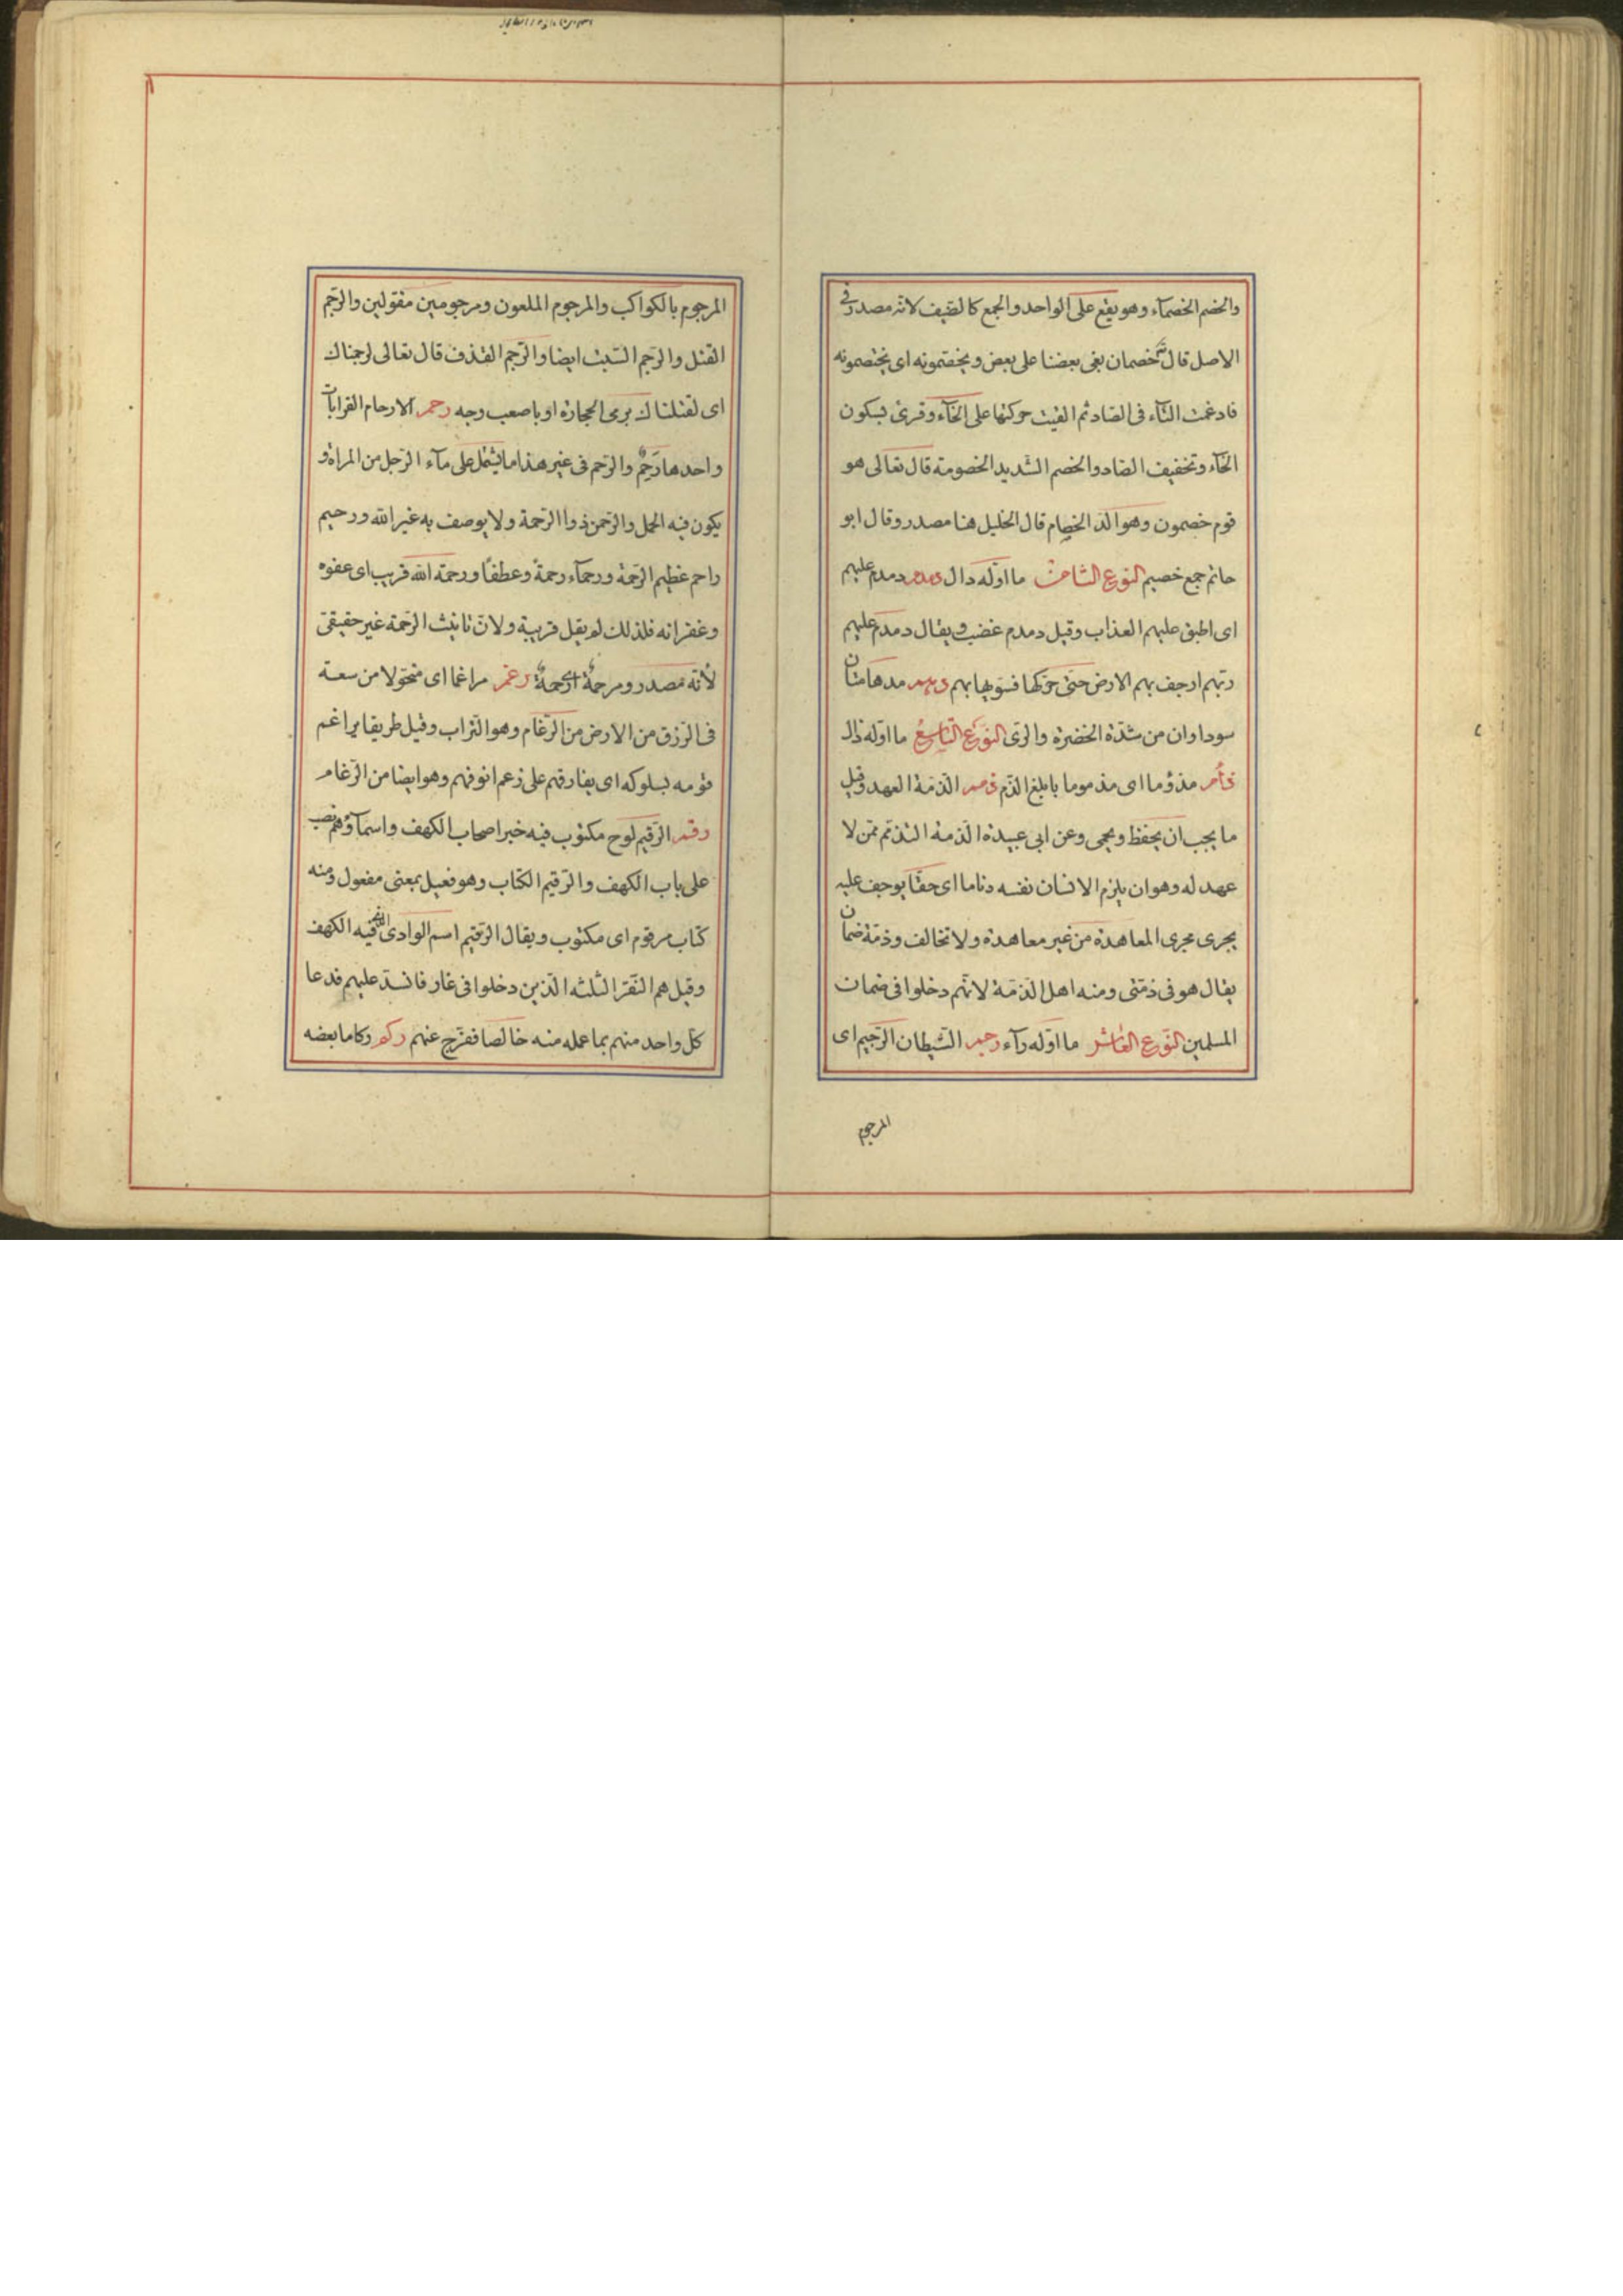 والخصم الخصمآء وهو يقع على الواحد والجمع كالضيف لانه مصدر فى
الاصل قال تعم خصمان بغى بعضنا على بعض ويخصمونه اى يختصمونه
فادغمت التآء فى الصاد ثم القيت حركتها على الخآء وقرئ بسكون
الخآء وتخفيف الصاد والخصم الشديد الخصومة قال تعالى هو
قوم خصمون وهو الد الخصام قال الخليل هنا مصدر وقال ابو
حاتم جمع خصيم النوع الثامن ما اوّله دال دمدم دمدم عليهم
اى اطبق عليهم العذاب وقيل دمدم غضب ويقال دمدم عليهم
ربّهم ارجف بهم الارض حتى حرّكها فسوّيها بهم دهم مدهامّتان
سوداوان من شدّة الخضرة والرّى النّوع التاسع ما اوّله ذال
ذأم مذؤما اى مذموما بابلغ الذّم ذمم الذمّة العهد وقيل
ما يجب ان يحفظ ويحمى وعن ابى عبيدة الذّمة التذمّم ممّن لا
عهد له وهو ان يلزم الانسان نفسه ذماما اى حقّا يوجبه عليه
يجرى مجرى المعاهدة من غير معاهدة ولا تخالف وذمّة ضمان
يقال هو فى ذمّتى ومنه اهل الذمّة لانّهم دخلوا فى ضمان
المسلمين النّوع العاشر ما اوّله رآء رجم الشّيطان الرّجيم اى
المرجوم
المرجوم بالكواكب والمرجوم الملعون ومرجومين مقتولين والرّجم
القتل والرّجم السّبّ ايضا والرّجم القذف قال تعالى لرجمناك
اى لقتلناك برمى الحجارة او باصعب وجه رحم الارحام القرابات
واحدها رحم والرّحم فى غير هذا ما يشتمل على مآء الرّجل من المراة و
يكون فيه الحمل والرّحمن ذو الرّحمة ولا يوصف به غير الله ورحيم
راحم عظيم الرّحمة ورحمآء رحمة وعطفا ورحمة الله قريب اى عفوه
وغفرانه فلذلك لم يقل قريبة ولانّ تانيث الرّحمة غير حقيقىّ
لانّه مصدر ومرحمة اى رحمة رغم مراغما اى متحوّلا من سعة
فى الرّزق من الارض من الرّغام وهو التّراب وقيل طريقا يراغم
قومه بسلوكه اى يفارقهم على رغم انوفهم وهو ايضا من الرّغام
رقم الرّقيم لوح مكتوب فيه خبر اصحاب الكهف واسمآؤهم نصب
على باب الكهف والرّقيم الكتاب وهو فعيل بمعنى مفعول ومنه
كتاب مرقوم اى مكتوب ويقال الرّقيم اسم الوادى الّذى فيه الكهف
وقيل هم النّفر الثّلثه الّذين دخلوا فى غار فانسدّ عليهم فدعا
كلّ واحد منهم بما عمله منه خالصا ففرّج عنهم ركم ركاما بعضه